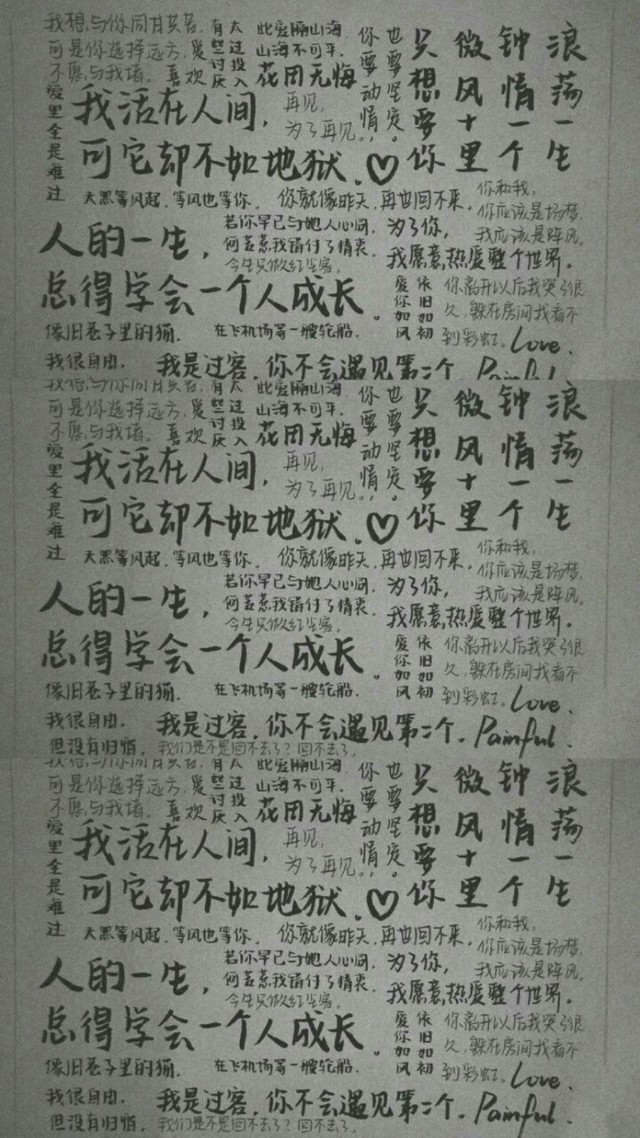 我想与你同甘共苦,
可是你选择远方,
不愿与我堵。
有太
些过
讨投
厌入
爱
喜欢
此爱隔山海
山海不可平.
花开无悔
你也
要要
动坚
情定
只想要你
微风十里
钟情一个
浪荡一生
爱里全是难过
我活在人间,
再见,
为了再见
可它却不如地狱.♡
天黑等风起.等风也等你.
你就像昨天,再也回不来.
你和我,
你应该是场梦,
我应该是阵风.
人的一生,
若你早已与她人心同.
何苦惹我错付了情衷.
为了你,
我愿意热爱整个世界.
总得学会一个人成长.
爱你如风
依旧如初
你离开以后我哭了很
久,躲在房间我看不
到彩虹.
Love.
像旧巷子里的猫.
在飞机场等一艘轮船.
我很自由.
我是过客.你不会遇见第二个.
Painful.
可是你选择远方,
不愿与我堵。
有太
些过
讨投
厌入
爱
喜欢
此爱隔山海
山海不可平.
花开无悔
你也
要要
动坚
情定
只想要你
微风十里
钟情一个
浪荡一生
爱里全是难过
我活在人间,
再见,
为了再见
可它却不如地狱.♡
天黑等风起.等风也等你.
你就像昨天,再也回不来.
你和我,
你应该是场梦,
我应该是阵风.
人的一生,
若你早已与她人心同.
何苦惹我错付了情衷.
为了你,
我愿意热爱整个世界.
总得学会一个人成长.
爱你如风
依旧如初
你离开以后我哭了很
久,躲在房间我看不
到彩虹.
Love.
像旧巷子里的猫.
在飞机场等一艘轮船.
我很自由.
但没有归宿.
我是过客.你不会遇见第二个.
Painful.
我们是不是回不去了?回不去了.
可是你选择远方,
不愿与我堵。
有太
些过
讨投
厌入
爱
喜欢
山海不可平.
花开无悔
你也
要要
动坚
情定
只想要你
微风十里
钟情一个
浪荡一生
爱里全是难过
我活在人间,
再见,
为了再见
可它却不如地狱.♡
天黑等风起.等风也等你.
你就像昨天,再也回不来.
你和我,
你应该是场梦,
我应该是阵风.
人的一生,
若你早已与她人心同.
何苦惹我错付了情衷.
为了你,
我愿意热爱整个世界.
总得学会一个人成长.
爱你如风
依旧如初
你离开以后我哭了很
久,躲在房间我看不
到彩虹.
Love.
像旧巷子里的猫.
在飞机场等一艘轮船.
我很自由.
但没有归宿.
我是过客.你不会遇见第二个.
Painful.
我们是不是回不去了?回不去了.